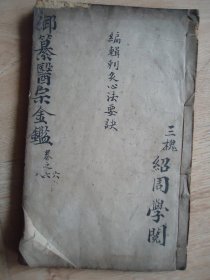 三槐
紹周學閱
編輯刺灸心法要訣
御纂醫宗金鑑
卷之